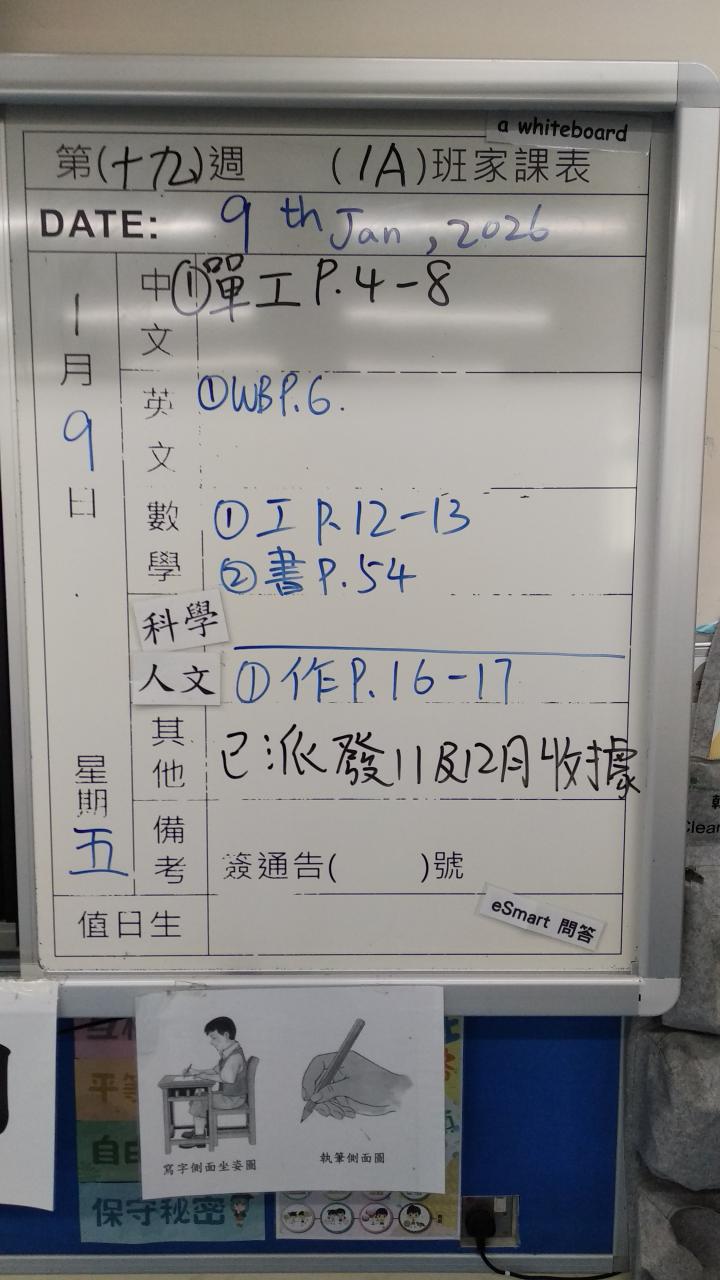 a whiteboard
第(十九)週 (1A)班家課表
DATE: 9th Jan, 2026
一月9日
星期五
中文 ①單工P.4-8
英文 ①WBP.6.
數學 ①工P.12-13
②書P.54
科學
人文 ①作P.16-17
其他 已派發11及12月收據
備考 簽通告( )號
值日生
eSmart 問答
寫字側面坐姿圖
執筆側面圖
平等
自
保守秘密